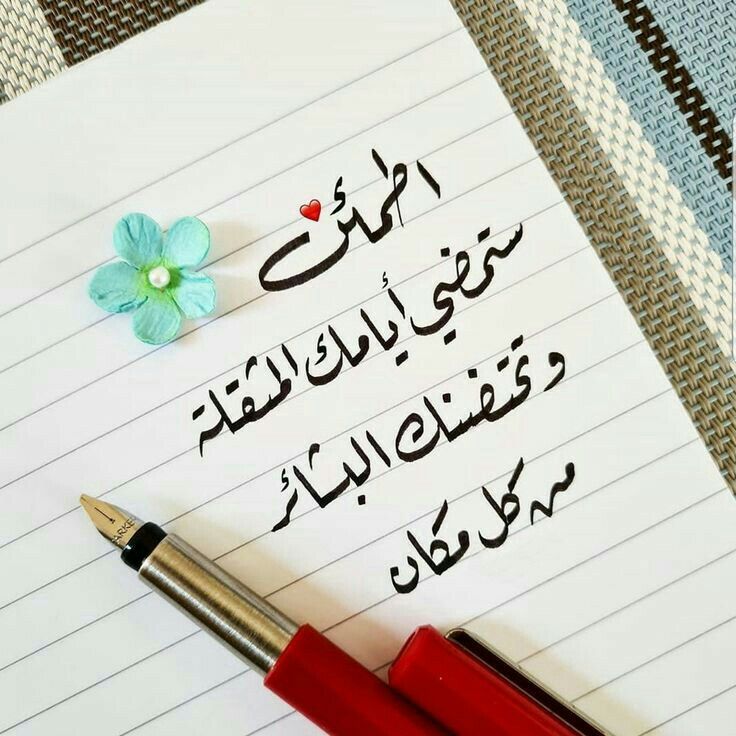 اطمئن
ستمضي أيامك المثقلة
وتحتضنك البشائر
من كل مكان
PARKER